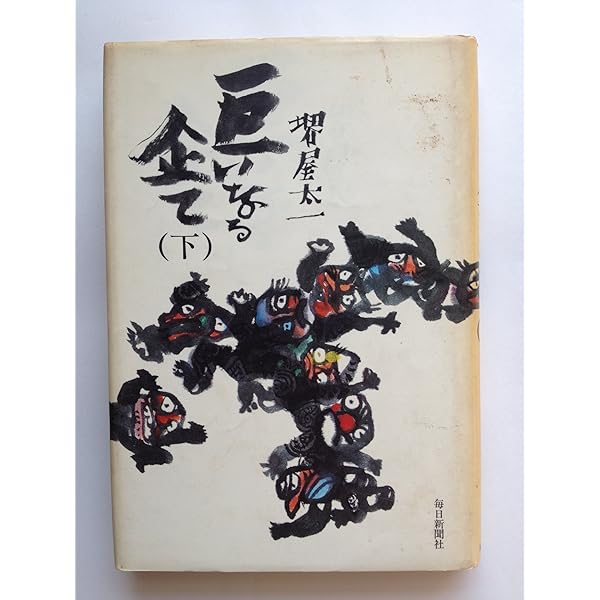 堺屋太一
巨いなる
企て
(下)
毎日新聞社